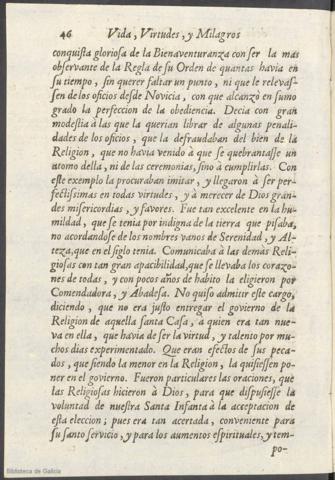 46 Vida, Virtudes, y Milagros
conquista gloriosa de la Bienaventuranza con ser la mas
observante de la Regla de su Orden de quantas havia en
su tiempo, sin querer faltar un punto, ni que le relevas-
sen de los oficios desde Novicia, con que alcanzò en sumo
grado la perfeccion de la obediencia. Decia con gran
modestia à las que la querian librar de algunas penali-
dades de los oficios, que la defraudaban del bien de la
Religion, que no havia venido à que se quebrantasse un
atomo della, ni de las ceremonias, sino à cumplirlas. Con
este exemplo la procuraban imitar, y llegaron à ser per-
fectissimas en todas virtudes, y à merecer de Dios gran-
des misericordias, y favores. Fue tan excelente en la hu-
mildad, que se tenia por indigna de la tierra que pisaba,
no acordandose de los nombres vanos de Serenidad, y Al-
teza, que en el siglo tenia. Comunicaba à las demàs Reli-
giosas con tan gran apacibilidad, que se llevaba los corazo-
nes de todas, y con pocos años de habito la eligieron por
Comendadora, y Abadesa. No quiso admitir este cargo,
diciendo, que no era justo entregar el govierno de la
Religion de aquella santa Casa, à quien era tan nue-
va en ella, que havia de ser la virtud, y talento por mu-
chos dias experimentado. Que eran efectos de sus peca-
dos, que siendo la menor en la Religion, la quisiessen po-
ner en el govierno. Fueron particulares las oraciones, que
las Religiosas hicieron à Dios, para que dispusiesse la
voluntad de nuestra Santa Infanta à la aceptacion de
esta eleccion; pues era tan acertada, conveniente para
su santo servicio, y para los aumentos espirituales, y tem-
po-
Biblioteca de Galicia